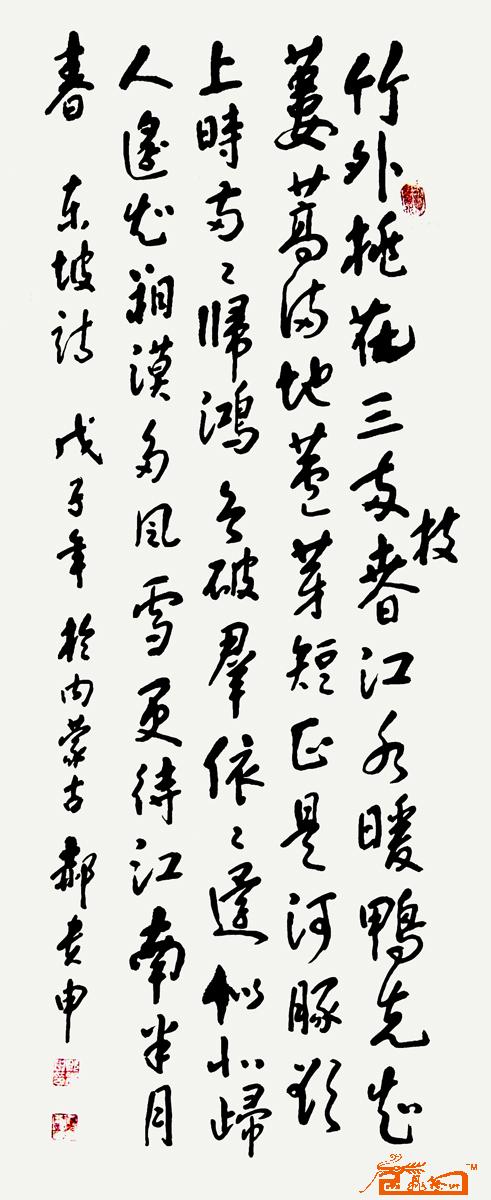 竹外桃花三两枝春江水暖鴨先知
蔞蒿满地蘆芽短正是河豚欲
上時两〻歸鴻欲破羣依〻還似北歸
人遙知朔漠多風雪更待江南半月
春 东坡詩 戊子年 於内蒙古 郝贵申